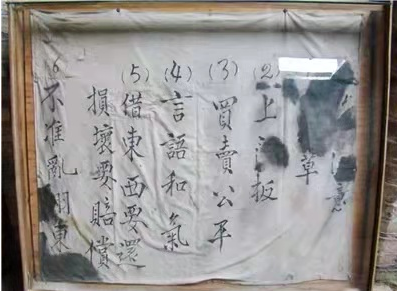 草
(2)上门板
(3)買賣公平
(4)言語和氣
(5)借東西要還
損壞要賠償
6不准亂東